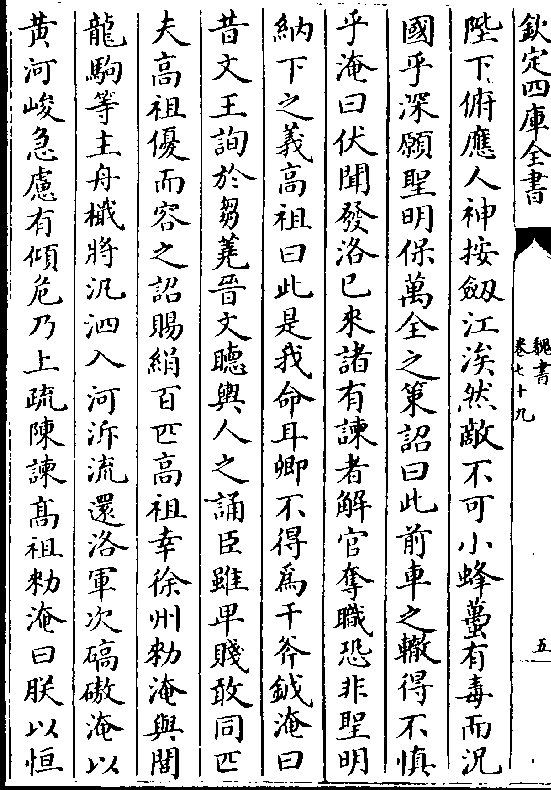 欽定四庫全書
魏書
卷七十九
五
陛下俯應人神按劔江涘然敵不可小蜂蠆有毒而況
國乎深願聖明保萬全之策詔曰此前車之轍得不慎
乎淹曰伏聞發洛已來諸有諫者解官奪職恐非聖明
納下之義高祖曰此是我命耳卿不得為干斧鉞淹曰
昔文王詢於芻蕘晉文聽輿人之誦臣雖卑賤敢同匹
夫高祖優而容之詔賜絹百匹高祖幸徐州勑淹與閭
龍駒等主舟檝將汎泗入河泝流還洛軍次碻磝淹以
黄河峻急慮有傾危乃上疏陳諫髙祖勑淹曰朕以恒